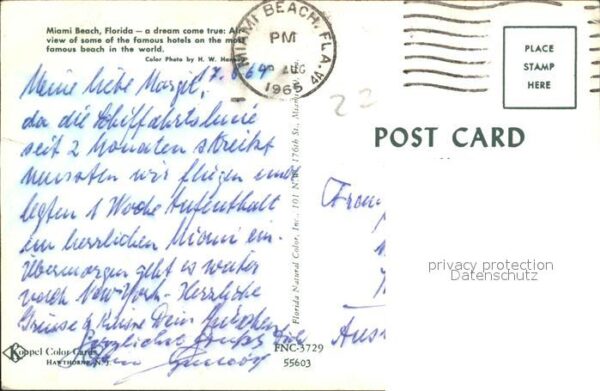 Miami Beach, Florida — a dream come true: Air
view of some of the famous hotels on the most
famous beach in the world.
Color Photo by H. W.
MIAMI BEACH, FLA.
PM
AUG
1965
PLACE
STAMP
HERE
POST CARD
Meine liebe Margit,
da die Schiffahrtslinie
seit 2 Monaten streikt
mussten wir fliegen und
legten 1 Woche Aufenthalt
im herrlichen Miami ein.
Übermorgen geht es weiter
nach New-York. Herzliche
Grüsse & Küsse Dein
Herzliche
Frau
privacy protection
Datenschutz
Florida Natural Color, Inc., 101 N.W. 176th St., Miami
Koppel Color Cards
HAWTHORNE, N.J.
FNC-3729
55603